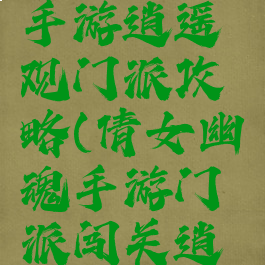 手游逍遥
观门派攻
略(倩女幽
魂手游门
派闯关逍